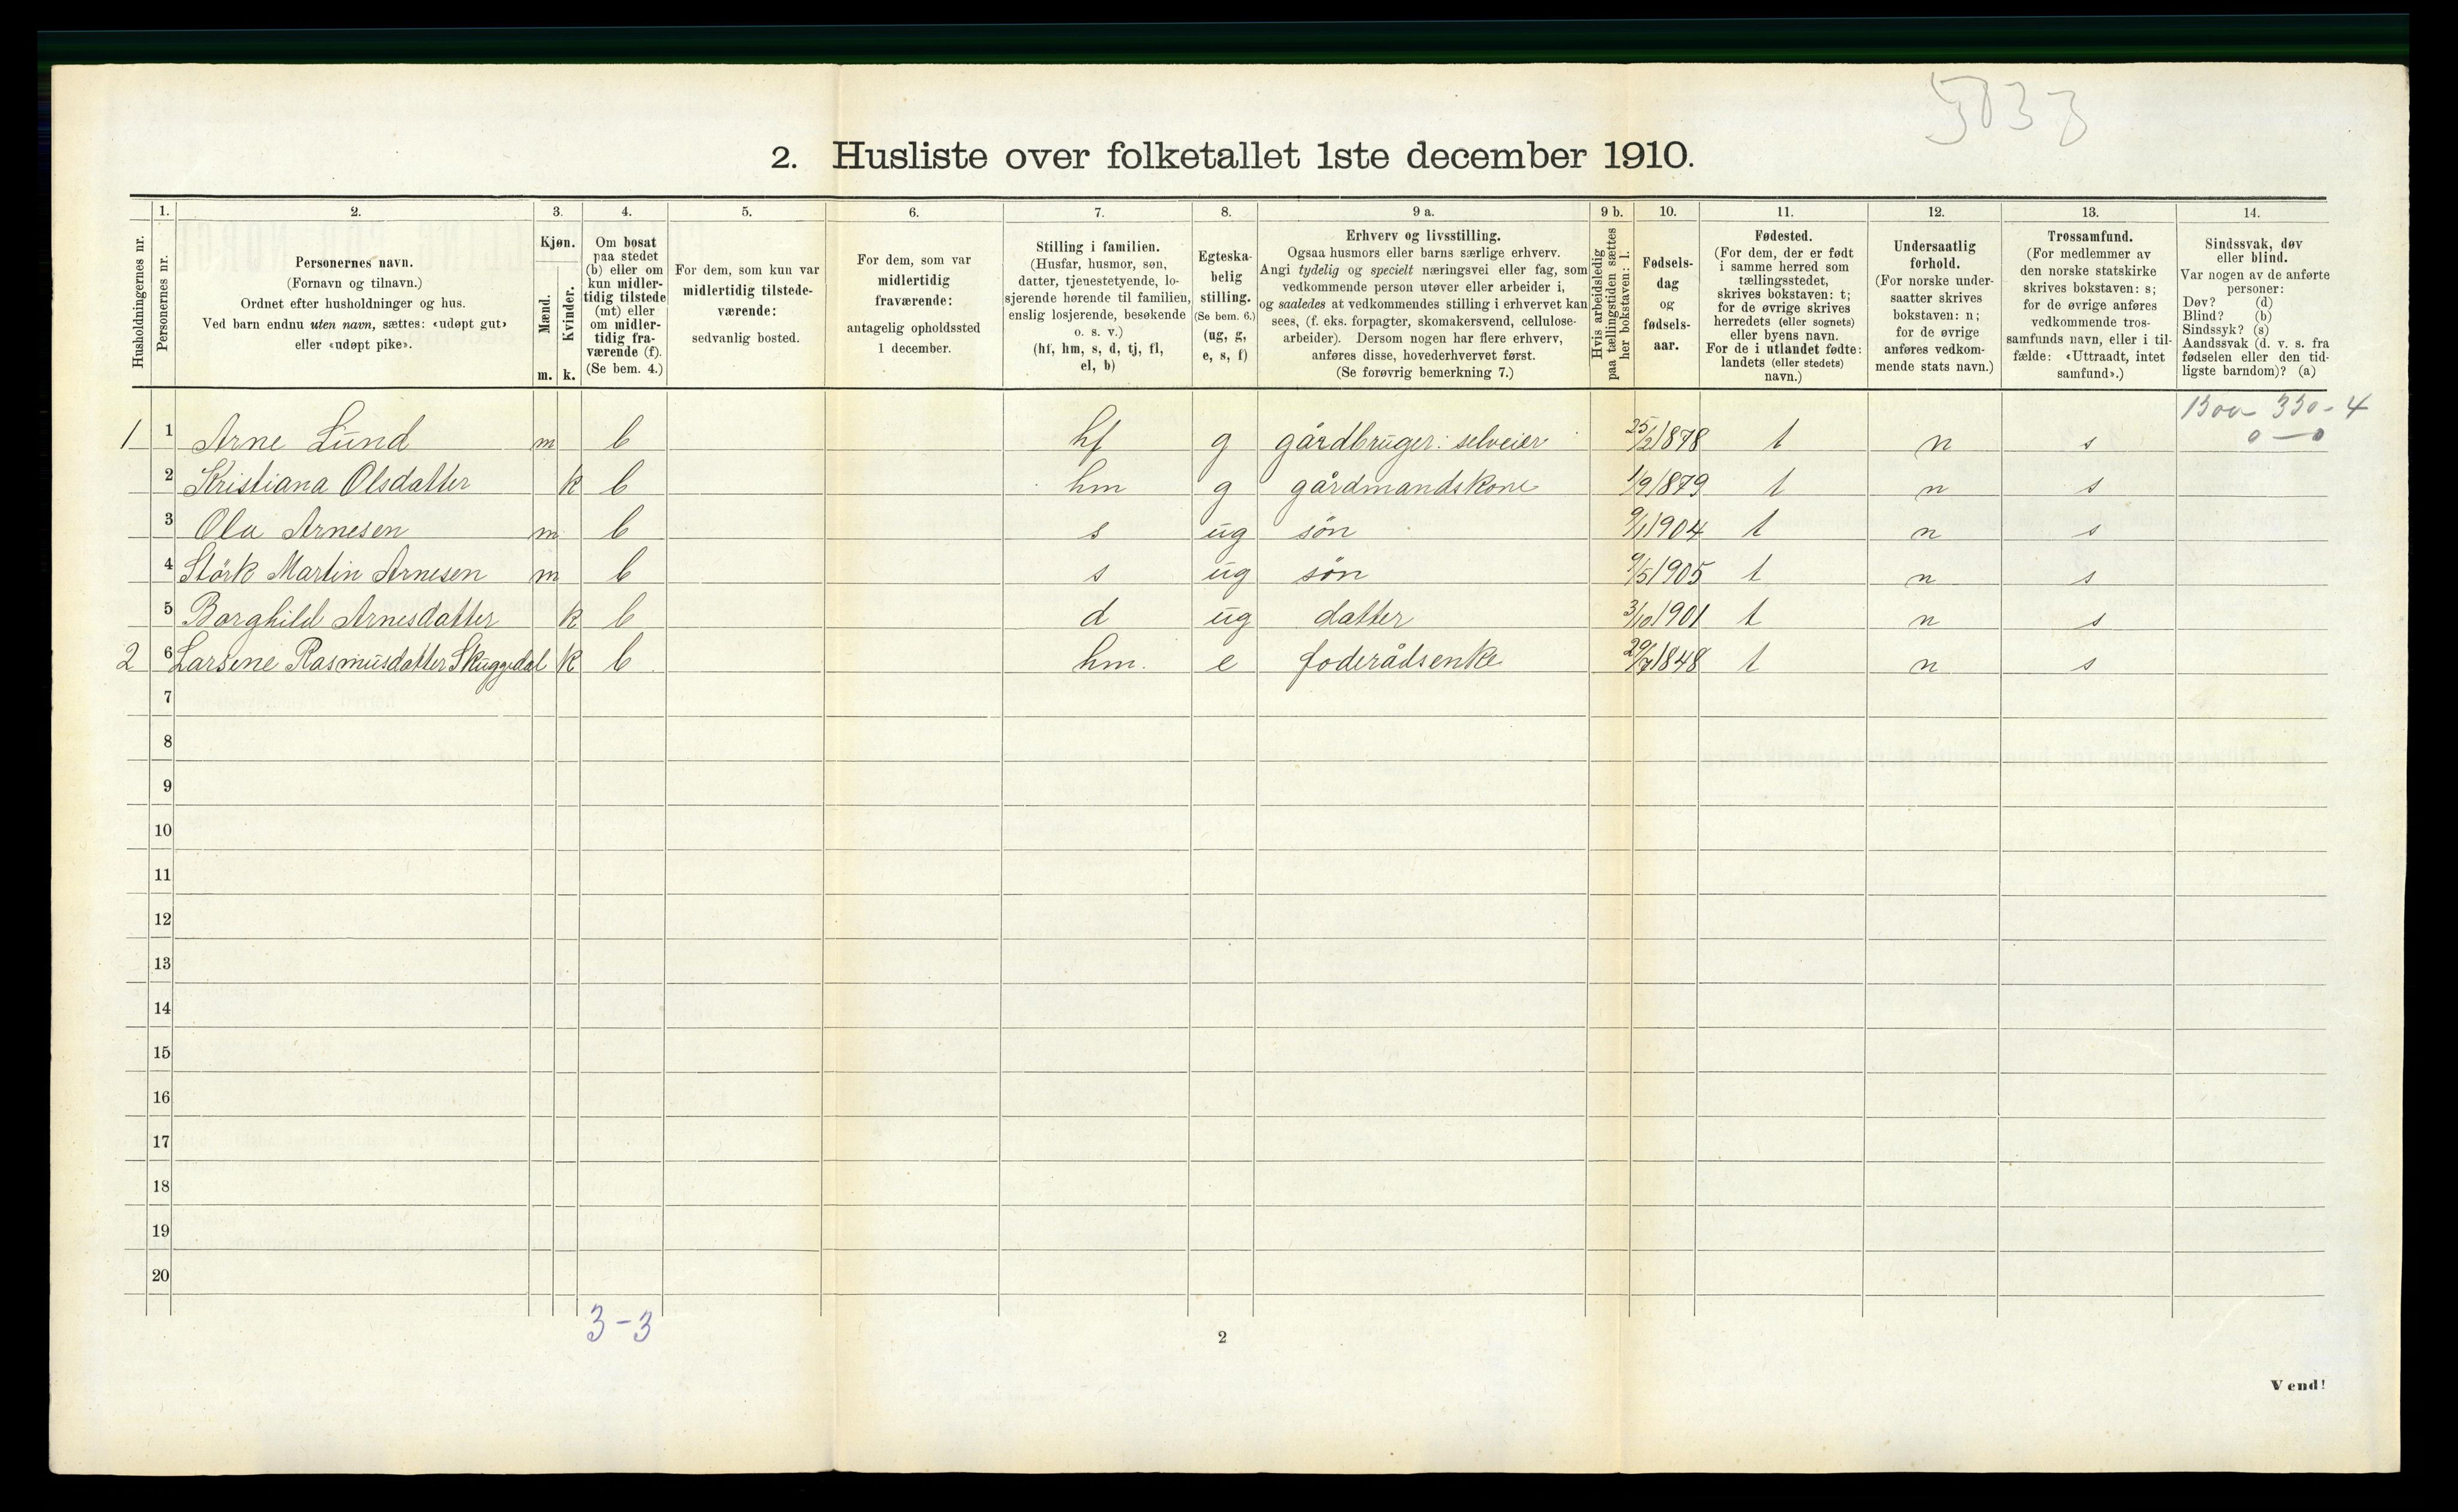 5033
2. Husliste over folketallet 1ste december 1910.
Husholdningernes nr.
1. Personernes nr.
2. Personernes navn.
(Fornavn og tilnavn.)
Ordnet efter husholdninger og hus.
Ved barn endnu uten navn, sættes: «udøpt gut»
eller «udøpt pike».
3. Kjøn.
Mænd. m.
Kvinder. k.
4. Om bosat
paa stedet
(b) eller om
kun midler-
tidig tilstede
(mt) eller
om midler-
tidig fra-
værende (f).
(Se bem. 4.)
5. For dem, som kun var
midlertidig tilstede-
værende:
sedvanlig bosted.
6. For dem, som var
midlertidig
fraværende:
antagelig opholdssted
1 december.
7. Stilling i familien.
(Husfar, husmor, søn,
datter, tjenestetyende, lo-
sjerende hørende til familien,
enslig losjerende, besøkende
o. s. v.)
(hf, hm, s, d, tj, fl,
el, b)
8. Egteska-
belig
stilling.
(Se bem. 6.)
(ug, g,
e, s, f)
9 a. Erhverv og livsstilling.
Ogsaa husmors eller barns særlige erhverv.
Angi tydelig og specielt næringsvei eller fag, som
vedkommende person utøver eller arbeider i,
og saaledes at vedkommendes stilling i erhvervet kan
sees, (f. eks. forpagter, skomakersvend, cellulose-
arbeider). Dersom nogen har flere erhverv,
anføres disse, hovederhvervet først.
(Se forøvrig bemerkning 7.)
9 b. Hvis arbeidsledig
paa tællingstiden sættes
her bokstaven: l.
10. Fødsels-
dag
og
fødsels-
aar.
11. Fødested.
(For dem, der er født
i samme herred som
tællingsstedet,
skrives bokstaven: t;
for de øvrige skrives
herredets (eller sognets)
eller byens navn.
For de i utlandet fødte:
landets (eller stedets)
navn.)
12. Undersaatlig
forhold.
(For norske under-
saatter skrives
bokstaven: n;
for de øvrige
anføres vedkom-
mende stats navn.)
13. Trossamfund.
(For medlemmer av
den norske statskirke
skrives bokstaven: s;
for de øvrige anføres
vedkommende tros-
samfunds navn, eller i til-
fælde: «Uttraadt, intet
samfund».)
14. Sindssvak, døv
eller blind.
Var nogen av de anførte
personer:
Døv? (d)
Blind? (b)
Sindssyk? (s)
Aandssvak (d. v. s. fra
fødselen eller den tid-
ligste barndom)? (a)
1500 - 350 - 4
0 - 0
1 1 Arne Lund m b hf g gårdbruger: selveier 25/2 1878 t n s
2 Kristiana Olsdatter k b hm g gårdmandskone 1/9 1879 t n s
3 Ola Arnesen m b s ug søn 9/1 1904 t n s
4 Störk Martin Arnesen m b s ug søn 9/5 1905 t n s
5 Borghild Arnesdatter k b d ug datter 3/10 1901 t n s
2 6 Larsene Rasmusdatter Skuggedal k b hm. e foderådsenke 29/7 1848 t n s
7
8
9
10
11
12
13
14
15
16
17
18
19
20
3-3
2
Vend!